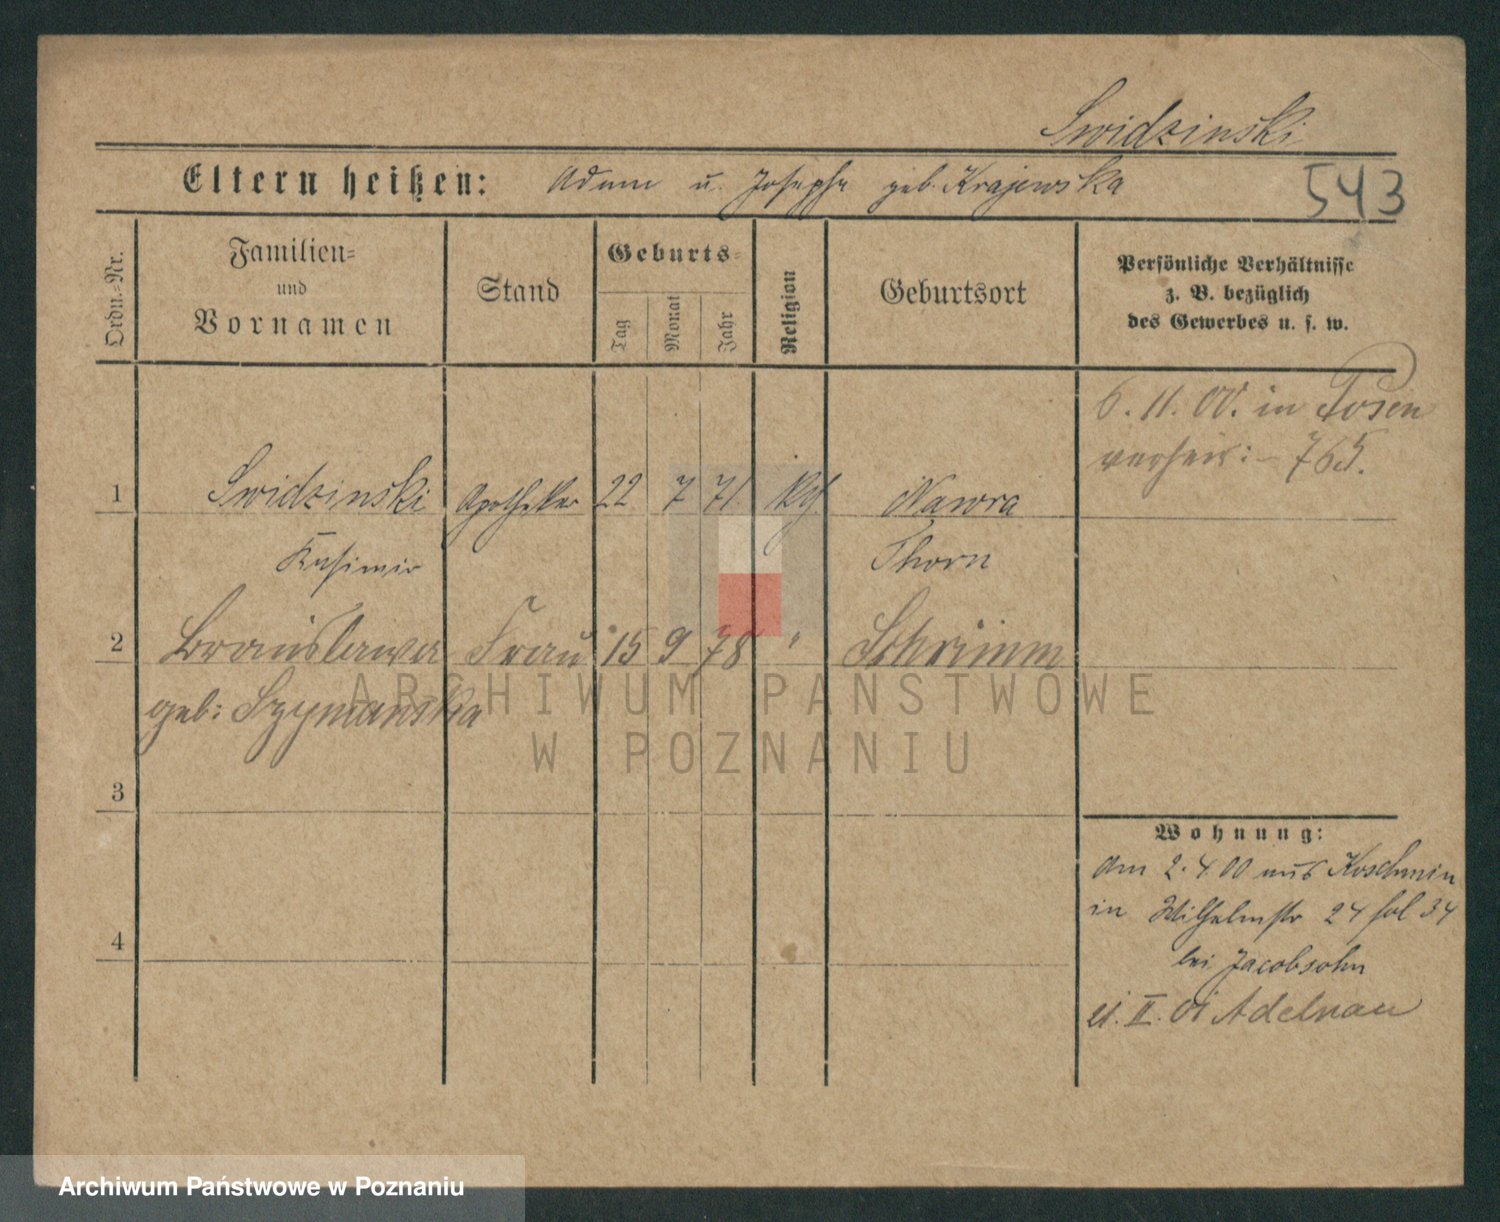 Swidzinski
Eltern heißen: Adam u. Josepha geb. Krajewska
543
Ordn.-Nr.
Familien-
und
Vornamen
Stand
Geburts-
Tag
Monat
Jahr
Religion
Geburtsort
Persönliche Verhältnisse
z. B. bezüglich
des Gewerbes u. s. w.
6. 11. 00. in Posen
verheir:- 765.
1 Swidzinski Apotheker 22 7 71 kth Nawra
Kasimir Thorn
2 Bronislawa Frau 15 9 78 " Schrimm
geb: Szymanska
3
4
Wohnung:
Am 2. 4 00 aus Koschmin
in Wilhelmstr 24 fol 34
bei Jacobsohn
II. 01 Adelnau
ARCHIWUM PAŃSTWOWE
W POZNANIU
Archiwum Państwowe w Poznaniu